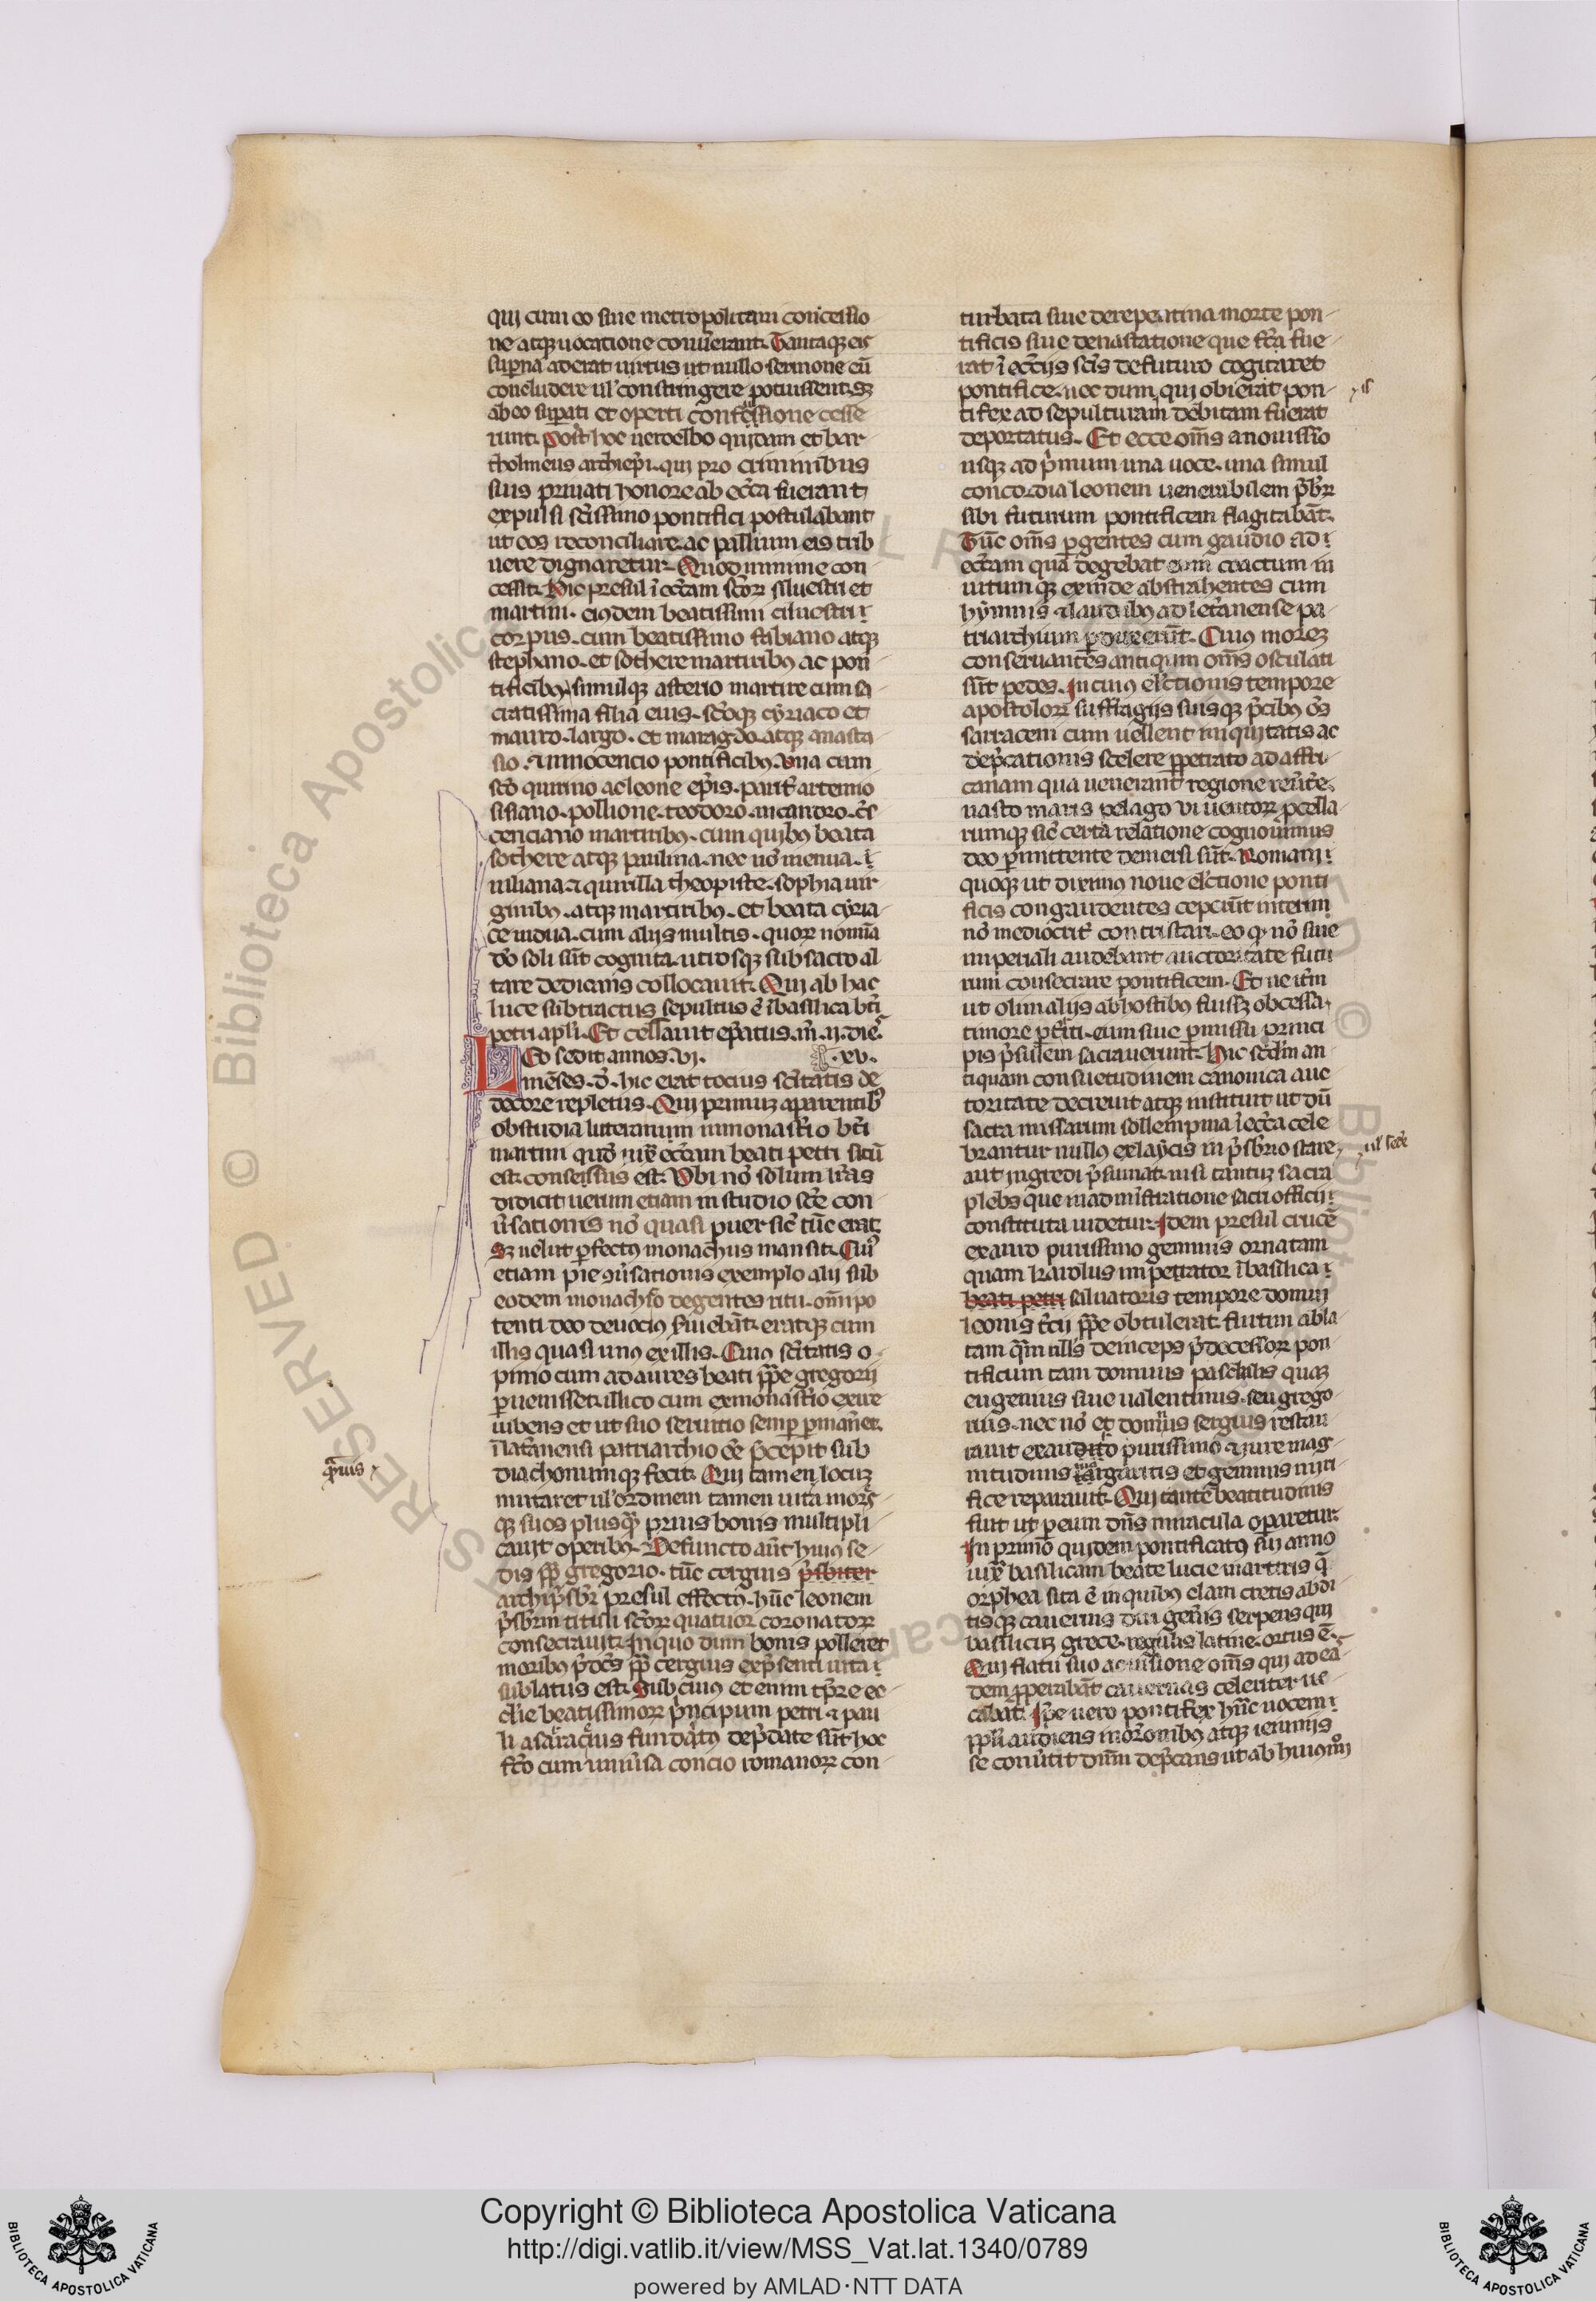 qui cum eo siue metropolitani concessio
ne atqꝫ uocatione conuenerant. Tantaqꝫ eis
suꝑna aderat uirtus ut nullo sermone eū
concludere ul' constringere potuissent. sꝫ
ab eo suꝑati et operti confessione cesse
runt. Post hoc uero elbo quidam et bar
tholmeus archiepi. qui pro criminibus
suis priuati honore ab ecc̄a fuerant
expulsi sc̄issimo pontifici postulabant
ut eos reconciliare. ac pallium eis trib
uere dignaretur. Quod minime con
cessit. Hic presul ī ecc̄iam sc̄oꝝ siluestri et
martini. eiusdem beatissimi siluestri
corpus. cum beatissimo fabiano atqꝫ
stephano. et sothere martiribꝰ ac pon
tificibꝰ simulqꝫ asterio martire cum sa
cratissima filia eius. sc̄oqꝫ cyriaco et
mauro. largo. et maragdo. atqꝫ anasta
sio. ⁊ innocencio pontificibꝰ. Vna cum
sc̄o quirino ac leone ep̄is. parit̄ artemio
sisiano. pollione. teodoro. nicandro. c̄s
cenciano martiribꝰ. cum quibꝰ beata
sothere atqꝫ paulina. nec nō menua.
iuliana. ⁊ quirilla theopiste. sophia uir
ginibꝰ. atqꝫ martiribꝰ. et beata cyria
ce uidua. cum alijs multis. quoꝝ noīna
dō soli sūt cognita. utrosqꝫ sub sacro al
tare dedicans collocauit. Qui ab hac
luce subtractus sepultus ē ī basilica bt̄i
petri apl̄i. Et cessauit ep̄atus. m̄. ij. dies
Leo sedit annos. vj. xv.
mēses. d̄. hic erat tocius sc̄itatis de
decore repletus. Qui primuꝫ a parentibꝰ
ob studia literarum in monast̄io bt̄i
martini quod iuxta ecc̄iam beati petri situ
est. consensus est. Vbi nō solum lr̄as
didicit uerum etiam in studio sc̄e con
ūsationis nō quasi puer sic̄ tūc erat
Sꝫ uelut ꝑfectꝰ monachus mansit. Cuiꝰ
etiam pie ꝯūsationis exemplo alij sub
eodem monach̄o degentes ritu. omīpo
tenti deo deuociꝰ ſuiebāt. eratqꝫ cum
illis quasi unꝰ ex illis. Cuiꝰ sc̄itatis o
pinio cum ad aures beati pp̄e gregorij
ꝑuenisset. illico cum ex monast̄io exire
iubens et ut suo seruitio semꝑ ꝑmāet.
ī lat̄anensi patriarchio eē p̄cepit sub
diachonumqꝫ fecit. Qui tamen locuꝫ
mutaret ul' ordinem tamen uitā moresqꝫ
qꝫ suos plusqꝫ prius bonis multipli
cauit operibꝰ. Defuncto aūt huiꝰ se
dis pp̄ gregorio. tūc cergius p̄sbiter
archip̄sbr̄ presul effectꝰ. hūc leonem
p̄sbrm̄ tituli sc̄oꝝ quatuor coronatoꝝ
consecrauit. In quo dum bonis polleret
moribꝰ p̄dc̄s pp̄ cergius ex p̄senti uita
sublatus est. Sub cuius et enim tp̄re ec
cl̄ie beatissimoꝝ p̄ncipum petri ⁊ pau
li a saracenis funditꝰ dep̄date sūt hoc
fc̄o cum uniūsa concio romanoꝝ con
turbata siue de repentina morte pon
tificis siue de uastatione que fc̄a fue
rat ī ecc̄ijs sc̄is de futuro cogitaret
pontifice. nec dum, qui obierat pon
tifex ad sepulturam debitam fuerat
deportatus. Et ecce om̄s a nouissīo
usqꝫ ad p̄mum una uoce. una simul
concordia leonem uenerabilem p̄br̄
sibi futurum pontificem flagitabāt.
Tūc om̄s ꝑgentes cum gaudio ad
ecc̄iam qua degebat eum coactum in
uitumqꝫ exinde abstrahentes cum
hymnis ⁊ laudibꝰ ad let̄anense pa
triarchium ꝑduxerūt. Cuiꝰ moreꝫ
conseruantes antiqum om̄s osculati
sūt pedes. In cuiꝰ el'ctionis tempore
apostoloꝝ suffragijs suisqꝫ p̄cibꝰ om̄s
sarraceni cum uellent iniquitatis ac
dep̄cationis scelere ꝑpetrato ad affri
canam qua uenerant regione reūt̄e.
uasto maris pelago ui uentoꝝ ꝓcella
rumqꝫ sic̄ certa relatione cognouimus
deo ꝑmittente demersi sūt. Romani
quoqꝫ ut diximꝰ noue el'ctione ponti
ficis congaudentes ceperūt interim
nō mediocrit̄ contristari. eo qꝫ nō siue
imperiali audebant auctoritate futu
rum consecrare pontificem. Et ne it̄m
ut olim alijs ab hostibꝰ fuissꝫ obcessa,
timore ꝑt̄riti. eum siue ꝑmissu princi
pis p̄sulem sacrauerunt. Hic sc̄dm̄ an
tiquam consuetudinem canonica auc
toritate decreuit atqꝫ instituit ut dū
sacra missarum sollempnia ī ecc̄a cele
brantur nullus ex laycis in p̄sbr̄io stare
aut ingredi p̄sumat. nisi tantuꝫ sacra
plebs que in administratione sacri officij
constituta uidetur. Idem presul crucē
ex auro purissimo gemmis ornatam
quam karolus impetrator ī basilica
beati petri saluatoris tempore domni
leonis t̄cij pp̄e obtulerat. furtim abla
tam qm̄ illis deinceps p̄decessoꝝ pon
tificum tam domnus paschalis quaꝫ
eugenius siue ualentinus. seu grego
rius. nec nō et domnus sergius restau
rauit ex audito purissimo ⁊ mire mag
nitudinis margaritis et gemmis miri
fice reparauit. Qui tante beatitudinis
fuit ut ꝑ eum dn̄s miracula oꝑaretur.
In primo quidem pontificatꝰ sui anno
iuxta basilicam beate lucie martiris q̄
orphea sita ē in quibꝰ clam cretis abdi
tisqꝫ cauernis diri gen̄is serpens qui
basilicuꝫ grece. regulus latine. ortus ē.
Qui flatu suo ac uisione om̄s qui ad eā
dem ꝓperabāt cauernas celeriter ne
cabat. Ipse uero pontifex hūc uocem
ppl'i audiens moronibꝰ atqꝫ ieiunijs
se conūtit dn̄m dep̄cans ut ab huiꝰmōi
p̄mis
ul' sed'e